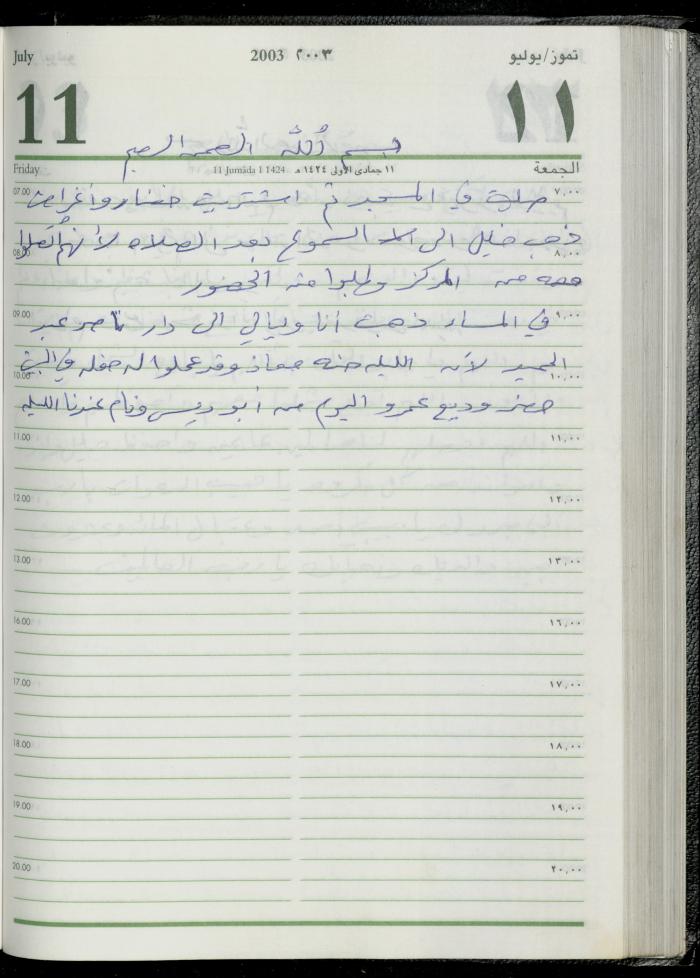 July 2003 ٢٠٠٣ تموز/يوليو
11 ١١
بسم الله الرحمن الرحيم
Friday 11 Jumāda I 1424 ١١ جمادى الأولى ١٤٢٤ هـ الجمعة
07.00 ٧,٠٠
صليت في المسجد ثم اشتريت خضار وأغراض
ذهب خليل الى السموع بعد الصلاه لأنهم اتصلوا
08.00 ٨,٠٠
معه من المركز وطلبوا منه الحضور
09.00 ٩,٠٠
في المساء ذهبت أنا وليالي الى دار ناصر عبد
الحميد لأن الليله حنه معاذ وقد عملوا له حفله في البيت
10.00 ١٠,٠٠
حضر وديع عمرو اليوم من أبو ديس ونام عندنا الليله
11.00 ١١,٠٠
12.00 ١٢,٠٠
13.00 ١٣,٠٠
16.00 ١٦,٠٠
17.00 ١٧,٠٠
18.00 ١٨,٠٠
19.00 ١٩,٠٠
20.00 ٢٠,٠٠